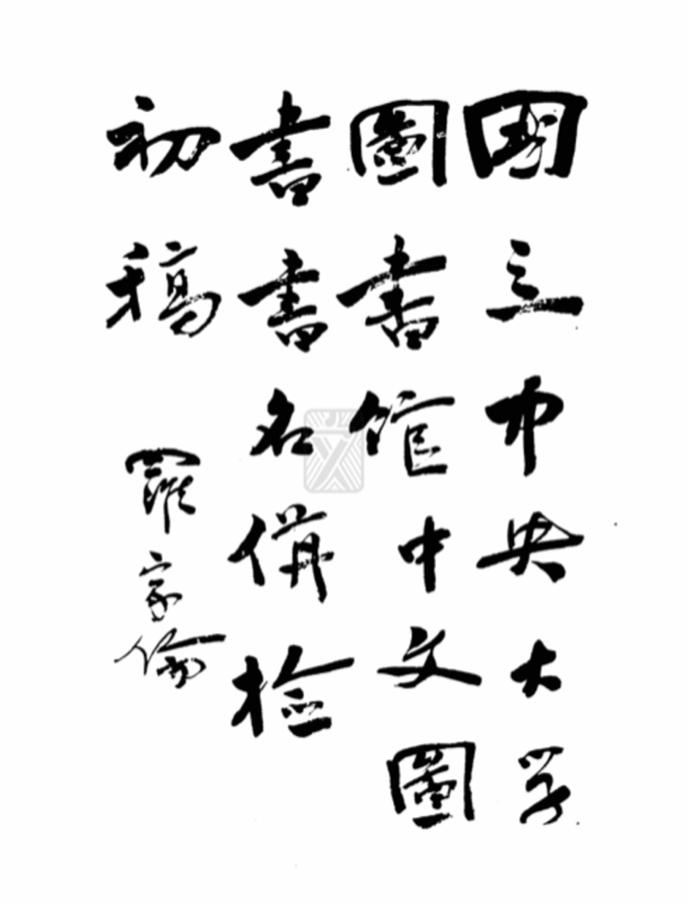 國立中央大学
圖書馆中文圖
書書名併检
初稿
羅家倫